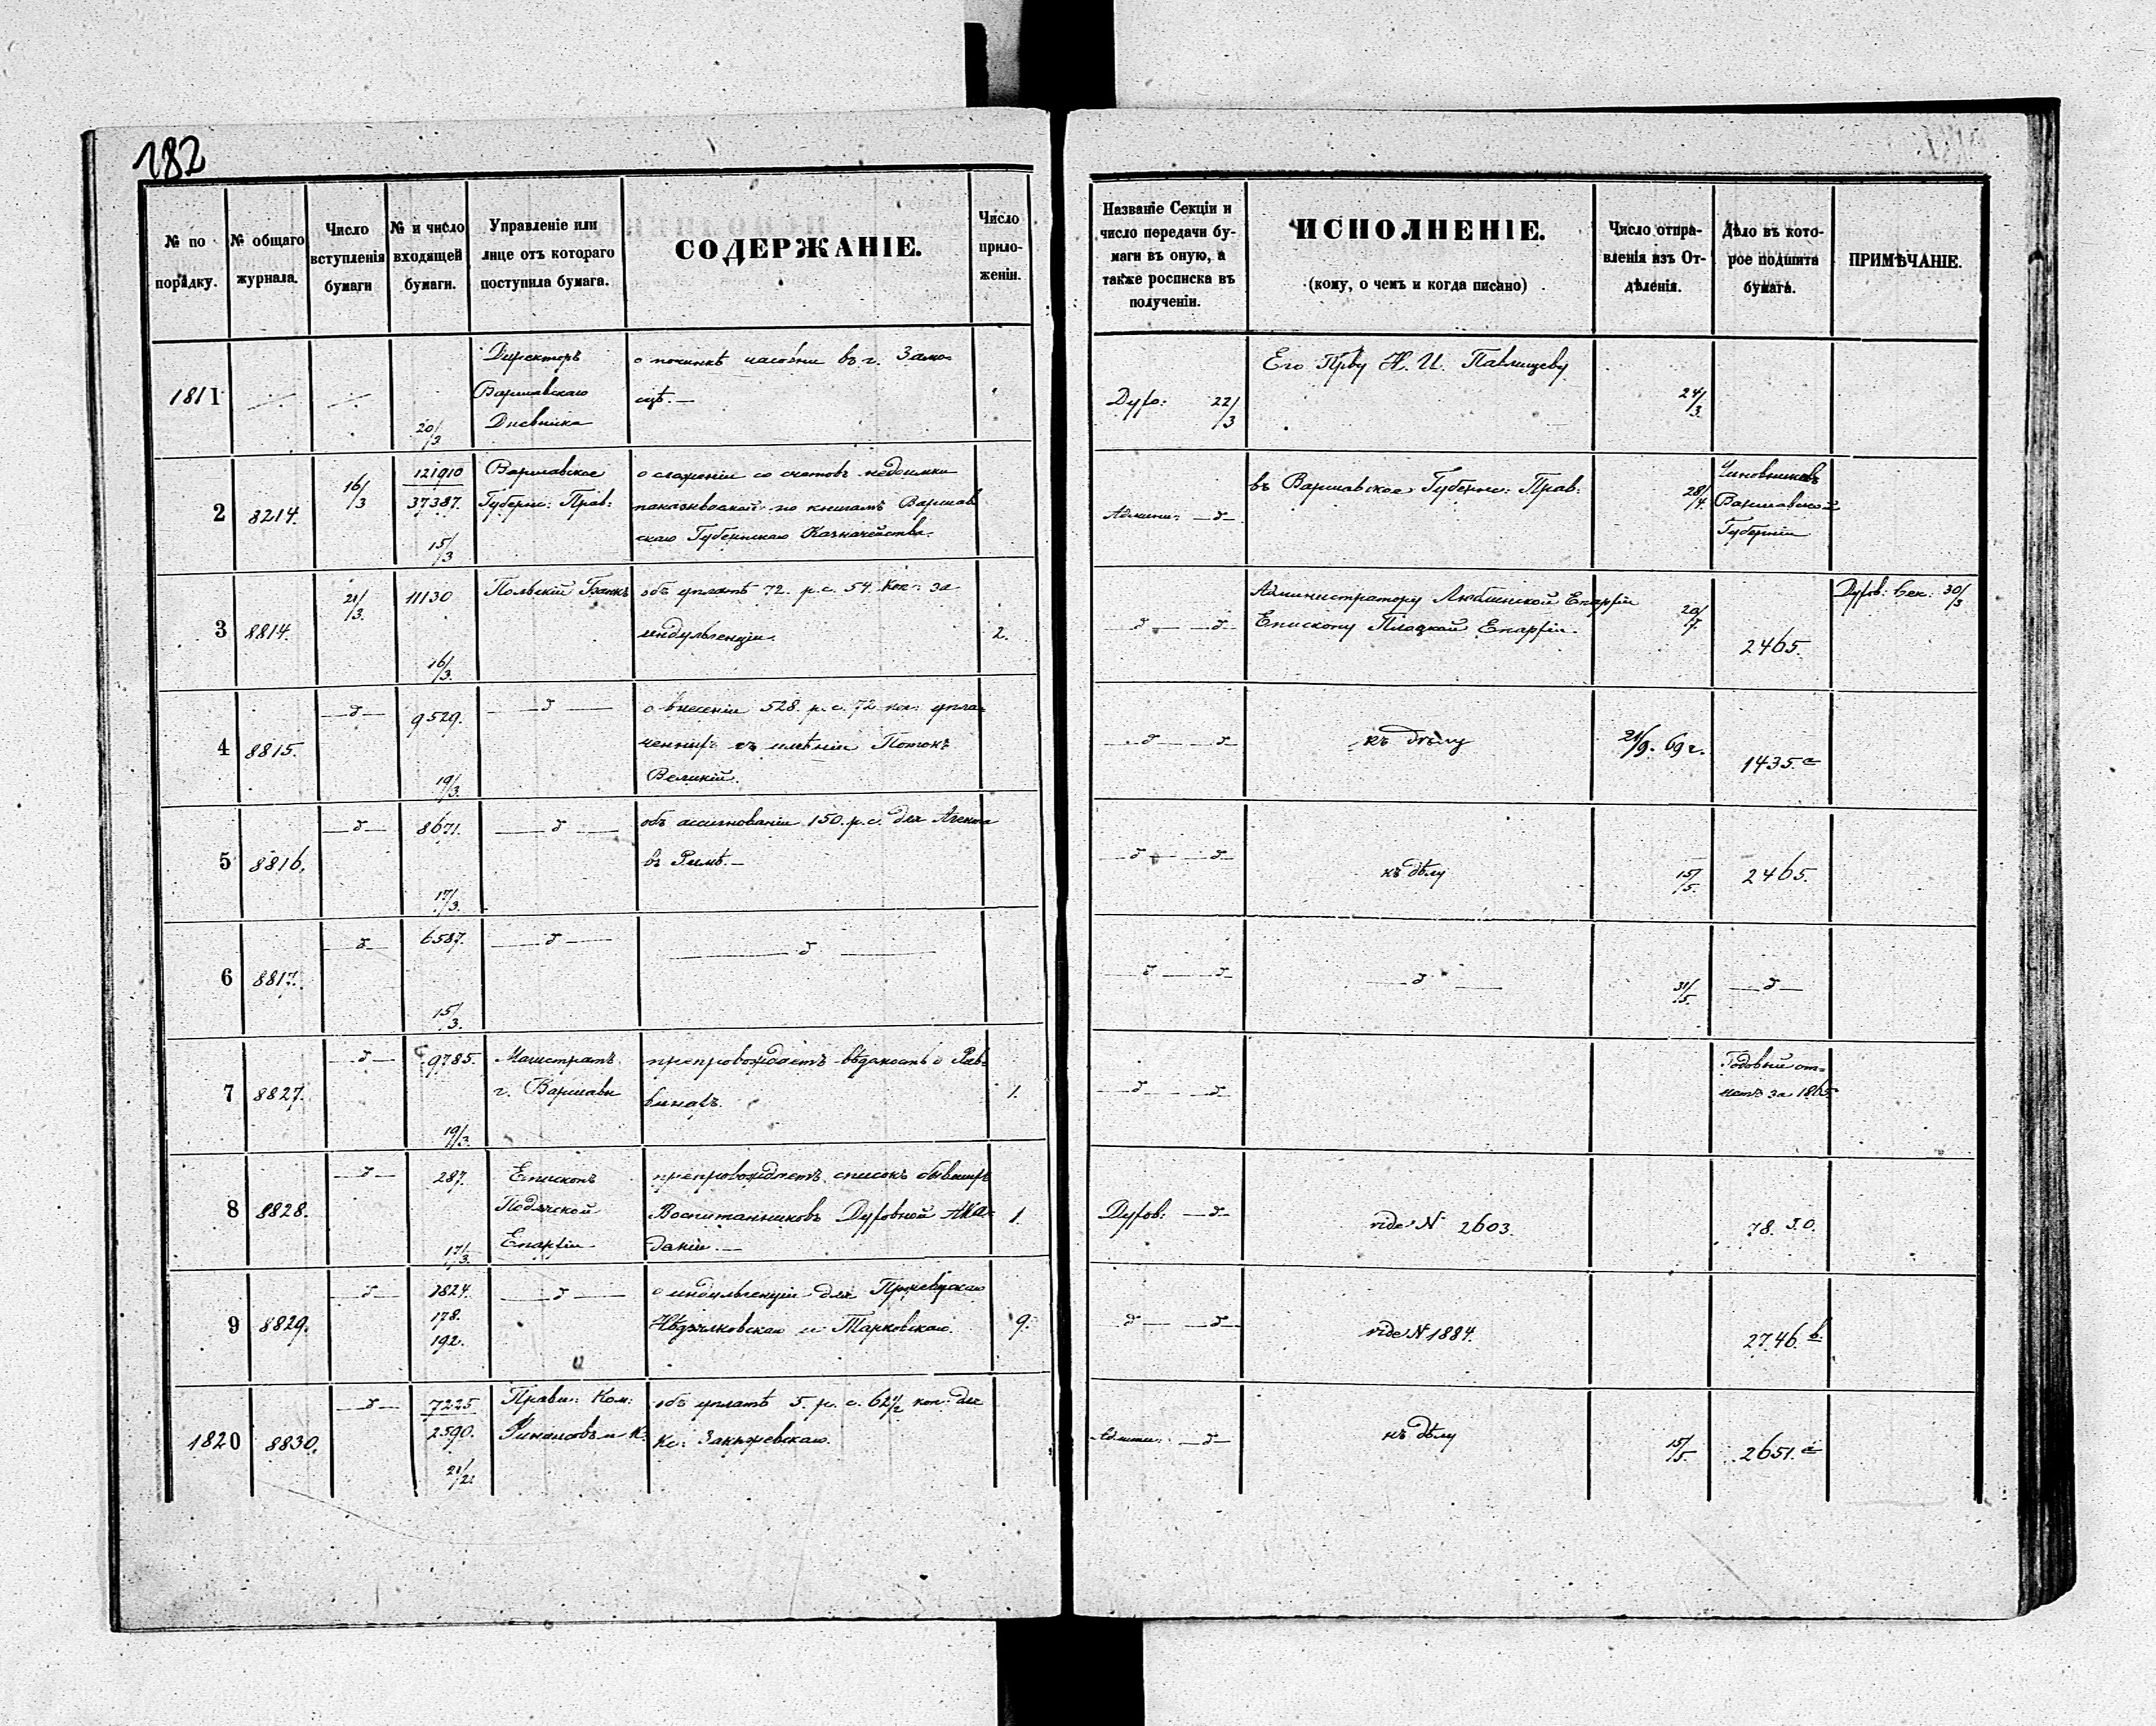 182
№ по порядку.
№ общаго журнала.
Число вступленія бумаги
№ и число входящей бумаги.
Управленіе или лице отъ котораго поступила бумага.
СОДЕРЖАНІЕ.
Число прило-женіи.
Названіе Секціи и число передачи бу-маги въ оную, а также росписка въ полученіи.
ИСПОЛНЕНІЕ.
(кому, о чемъ и когда писано)
Число отпра-вленія изъ От-дѣленія.
Дѣло въ кото-рое подшита бумага.
ПРИМѢЧАНІЕ.
1811
20/3
Директоръ
Варшавскаго
Дневника
о починкѣ часовни въ г. Замо-
сцѣ.—
Духо: 22/3
Его Прву Н. И. Павлищеву
24/3.
2 8214. 16/3
121910
37387.
15/3
Варшавское
Губерн: Прав:
о сложеніи со счетовъ недоимки
по книгамъ Варшав
скаго Губернскаго Казначейства.
Админ: —д—
въ Варшавское Губерн: Прав:
28/4.
Чиновниковъ
Варшавской
Губерніи
3 8814. 21/3.
11130
16/3.
Польскій Банкъ
объ уплатѣ 72. р. с. 54. коп: за
индульгенціи.
2.
—д— —д—
Администратору Люблинской Епархіи
Епископу Плоцкой Епархіи.
20/7.
2465.
Духов: Сек. 30/3
4 8815. —д—
9529.
19/3.
—д—
о внесеніи 528. р. с. 72 коп: упла-
ченныхъ съ имѣнія Потокъ
Великій.
—д— —д—
къ дѣлу
21/9. 69 г.
1435. c
5 8816. —д—
8671.
17/3.
—д—
объ ассигнованіи 150. р. с. для Агента
въ Римѣ.—
—д— —д—
къ дѣлу
15/5.
2465.
6 8817. —д—
6587.
15/3.
—д—
—д—
—д— —д—
—д—
31/5.
—д—
7 8827. —д—
9785.
19/3.
Магистратъ
г. Варшавы
препровождаетъ вѣдомость о Рав-
винахъ.
1.
—д— —д—
Годовый от-
четъ за 1865
8 8828. —д—
287.
17/3.
Епископъ
Подляской
Епархіи
препровождаетъ списокъ бывшихъ
Воспитанниковъ Духовной Ака-
деміи.—
1.
Духов: —д—
vide N 2603.
78. J.O.
9 8829. —д—
1824.
178.
192.
—д—
о индульгенціи для
и Тарковскаго.
9.
—д— —д—
vide N 1884.
2746. b
1820 8830. —д—
7225
2590.
21/21
Прави: Ком:
Финансовъ
объ уплатѣ 5. р. с. 62 1/2 коп: для
Кс: Закржевскаго.
Админ: —д—
къ дѣлу
15/5.
2651. c